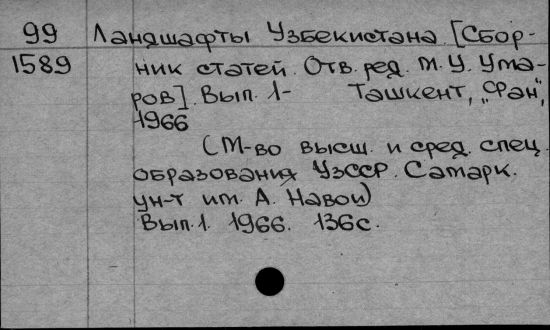 99 Ландшафты Узбекистана. [Сбор-
1589 ник статей. Отв. ред. М. У. Ума-
ров]. Вып. 1- Ташкент, „Фан",
1966
(М-во высш. и сред. спец.
образования УзССР. Самарк.
ун-т им. А. Навои)
Вып. 1. 1966. 136с.